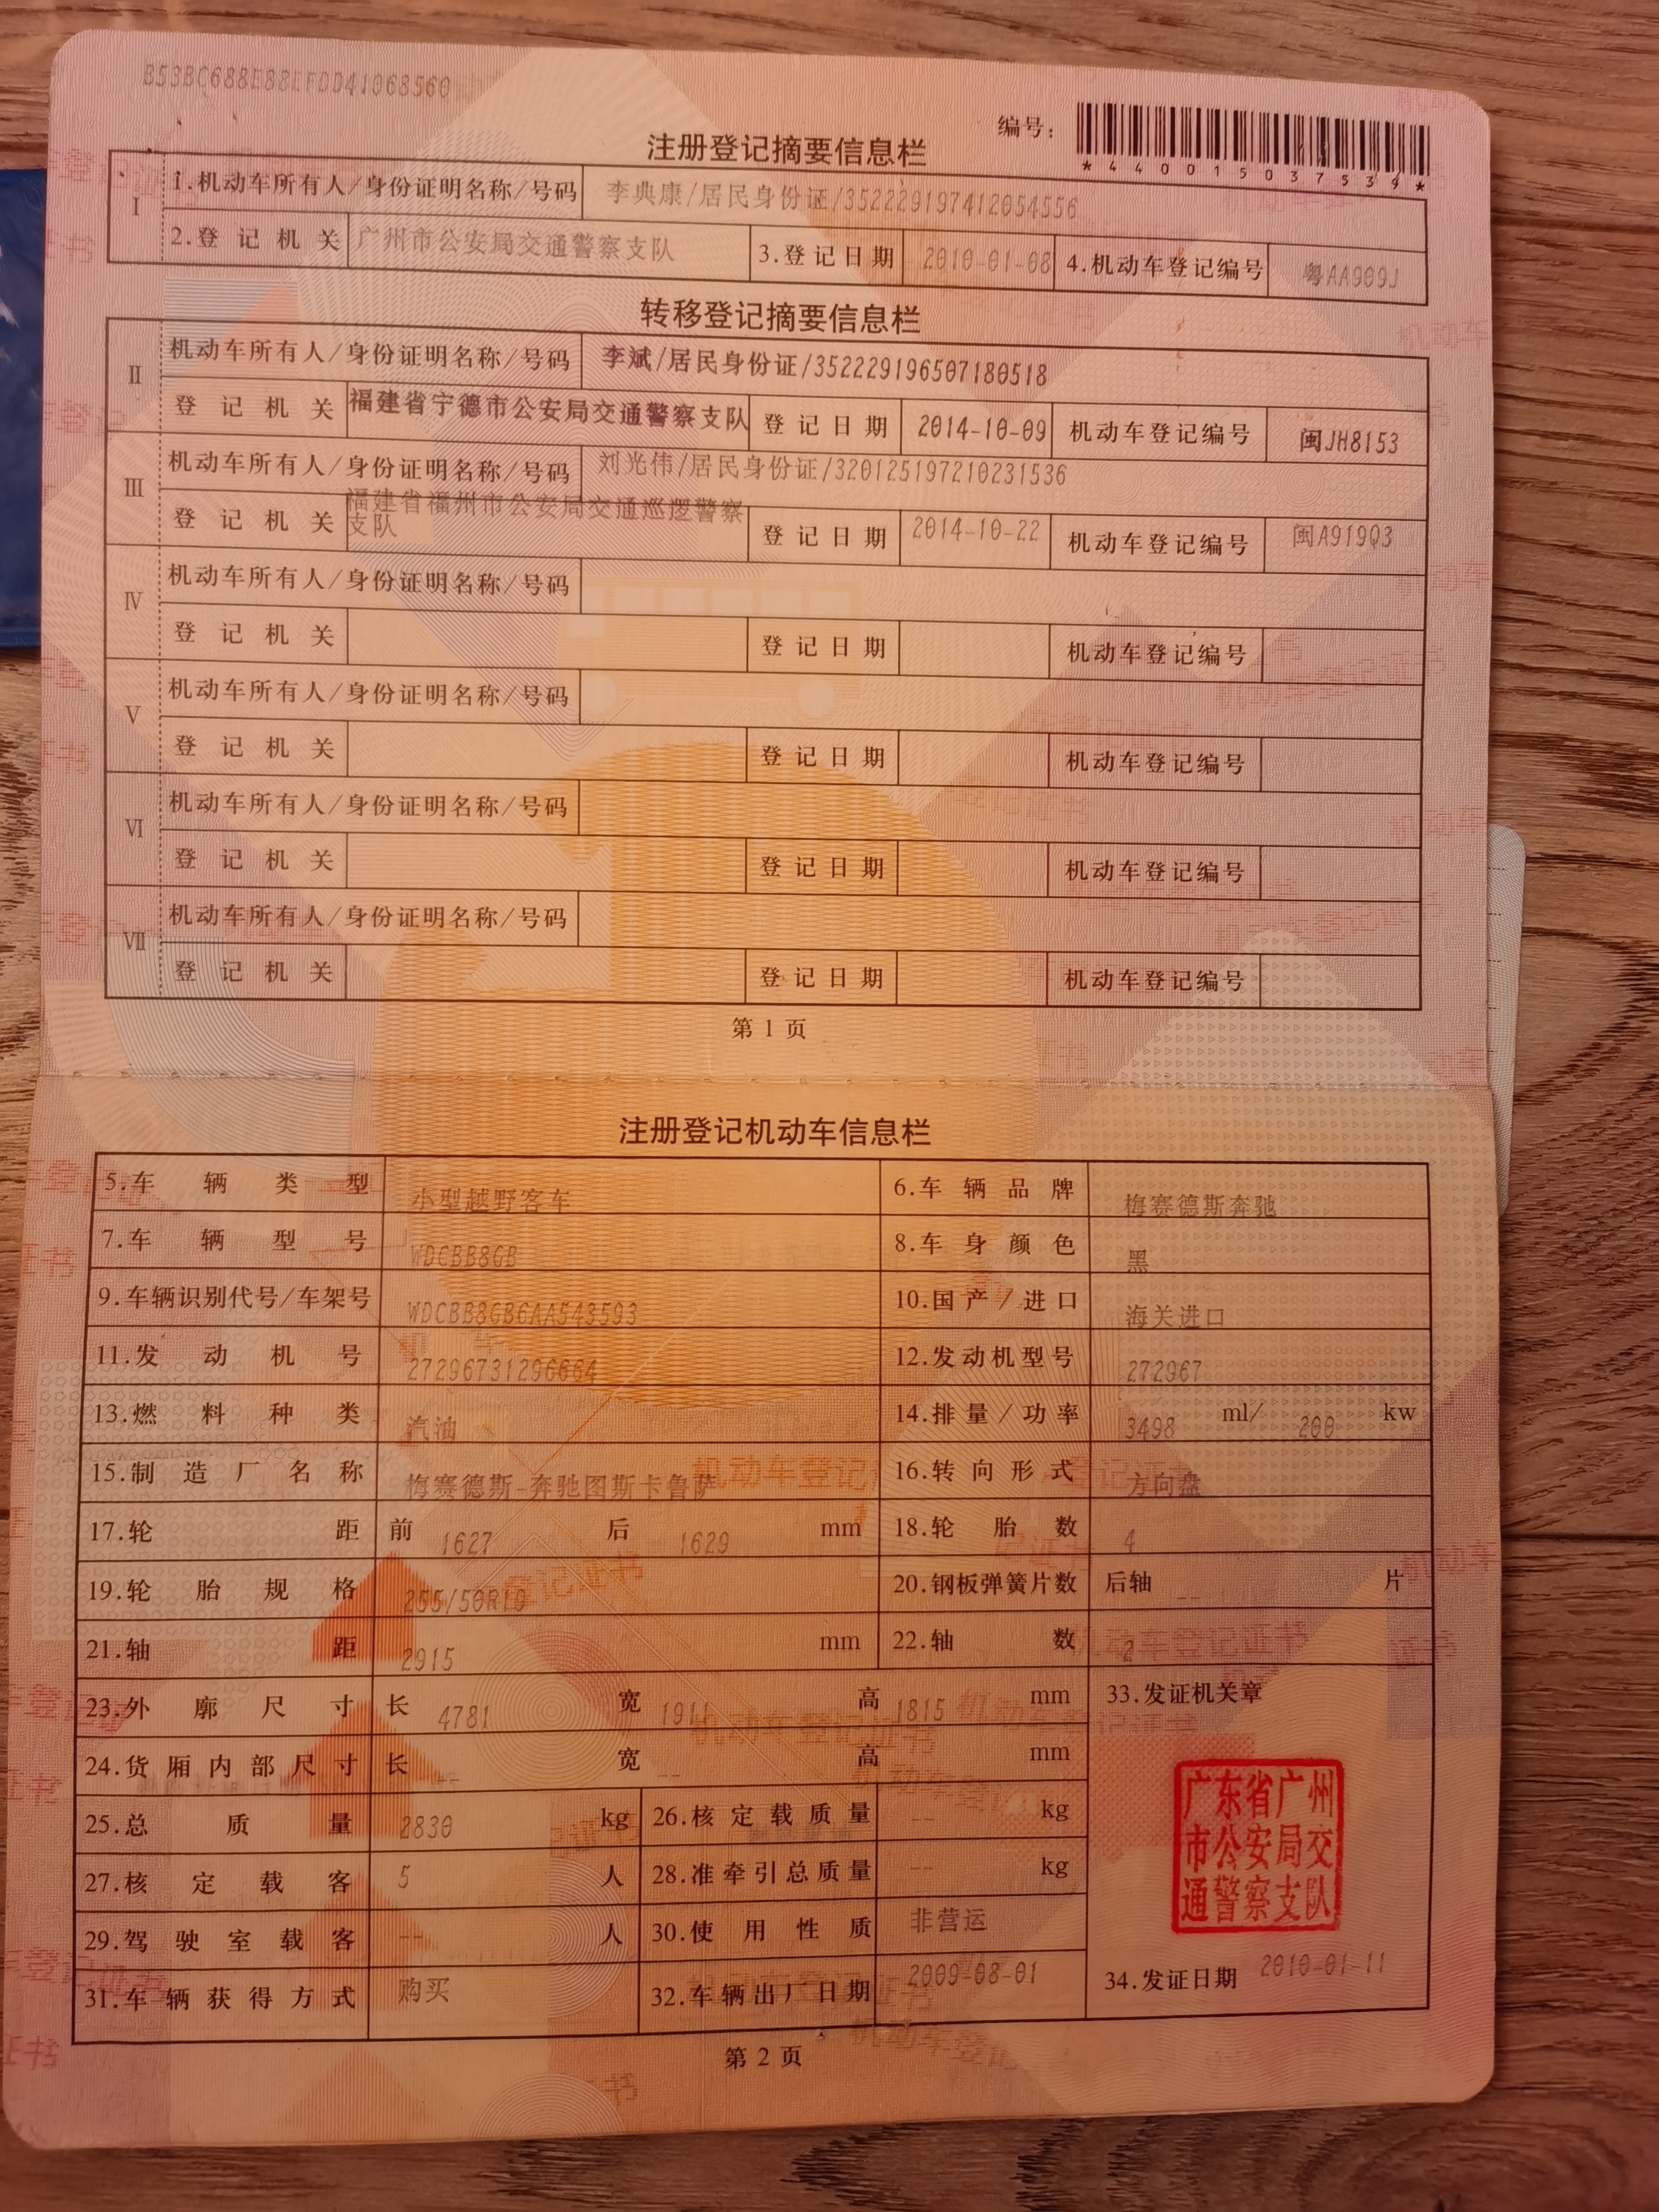 B53BC688E88EFDD41068560
编号：
*440015037539*
注册登记摘要信息栏
I
1.机动车所有人/身份证明名称/号码 李典康/居民身份证/352229197412054556
2.登记机关 广州市公安局交通警察支队 3.登记日期 2010-01-08 4.机动车登记编号 粤AA909J
转移登记摘要信息栏
II
机动车所有人/身份证明名称/号码 李斌/居民身份证/352229196507180518
登记机关 福建省宁德市公安局交通警察支队 登记日期 2014-10-09 机动车登记编号 闽JH8153
III
机动车所有人/身份证明名称/号码 刘光伟/居民身份证/320125197210231536
登记机关 福建省福州市公安局交通巡逻警察
支队 登记日期 2014-10-22 机动车登记编号 闽A919Q3
IV
机动车所有人/身份证明名称/号码
登记机关 登记日期 机动车登记编号
V
机动车所有人/身份证明名称/号码
登记机关 登记日期 机动车登记编号
VI
机动车所有人/身份证明名称/号码
登记机关 登记日期 机动车登记编号
VII
机动车所有人/身份证明名称/号码
登记机关 登记日期 机动车登记编号
第 1 页
注册登记机动车信息栏
5.车辆类型 小型越野客车 6.车辆品牌 梅赛德斯奔驰
7.车辆型号 WDCBB8GB 8.车身颜色 黑
9.车辆识别代号/车架号 WDCBB8GB6AA543593 10.国产/进口 海关进口
11.发动机号 27296731296664 12.发动机型号 272967
13.燃料种类 汽油 14.排量/功率 3498 ml/ 200 kw
15.制造厂名称 梅赛德斯-奔驰图斯卡鲁萨 16.转向形式 方向盘
17.轮距 前 1627 后 1629 mm 18.轮胎数 4
19.轮胎规格 255/50R19 20.钢板弹簧片数 后轴 -- 片
21.轴距 2915 mm 22.轴数 2
23.外廓尺寸 长 4781 宽 1911 高 1815 mm 33.发证机关章
24.货厢内部尺寸 长 -- 宽 -- 高 mm
25.总质量 2830 kg 26.核定载质量 -- kg
27.核定载客 5 人 28.准牵引总质量 -- kg
29.驾驶室载客 -- 人 30.使用性质 非营运
31.车辆获得方式 购买 32.车辆出厂日期 2009-08-01 34.发证日期 2010-01-11
广东省广州
市公安局交
通警察支队
第 2 页